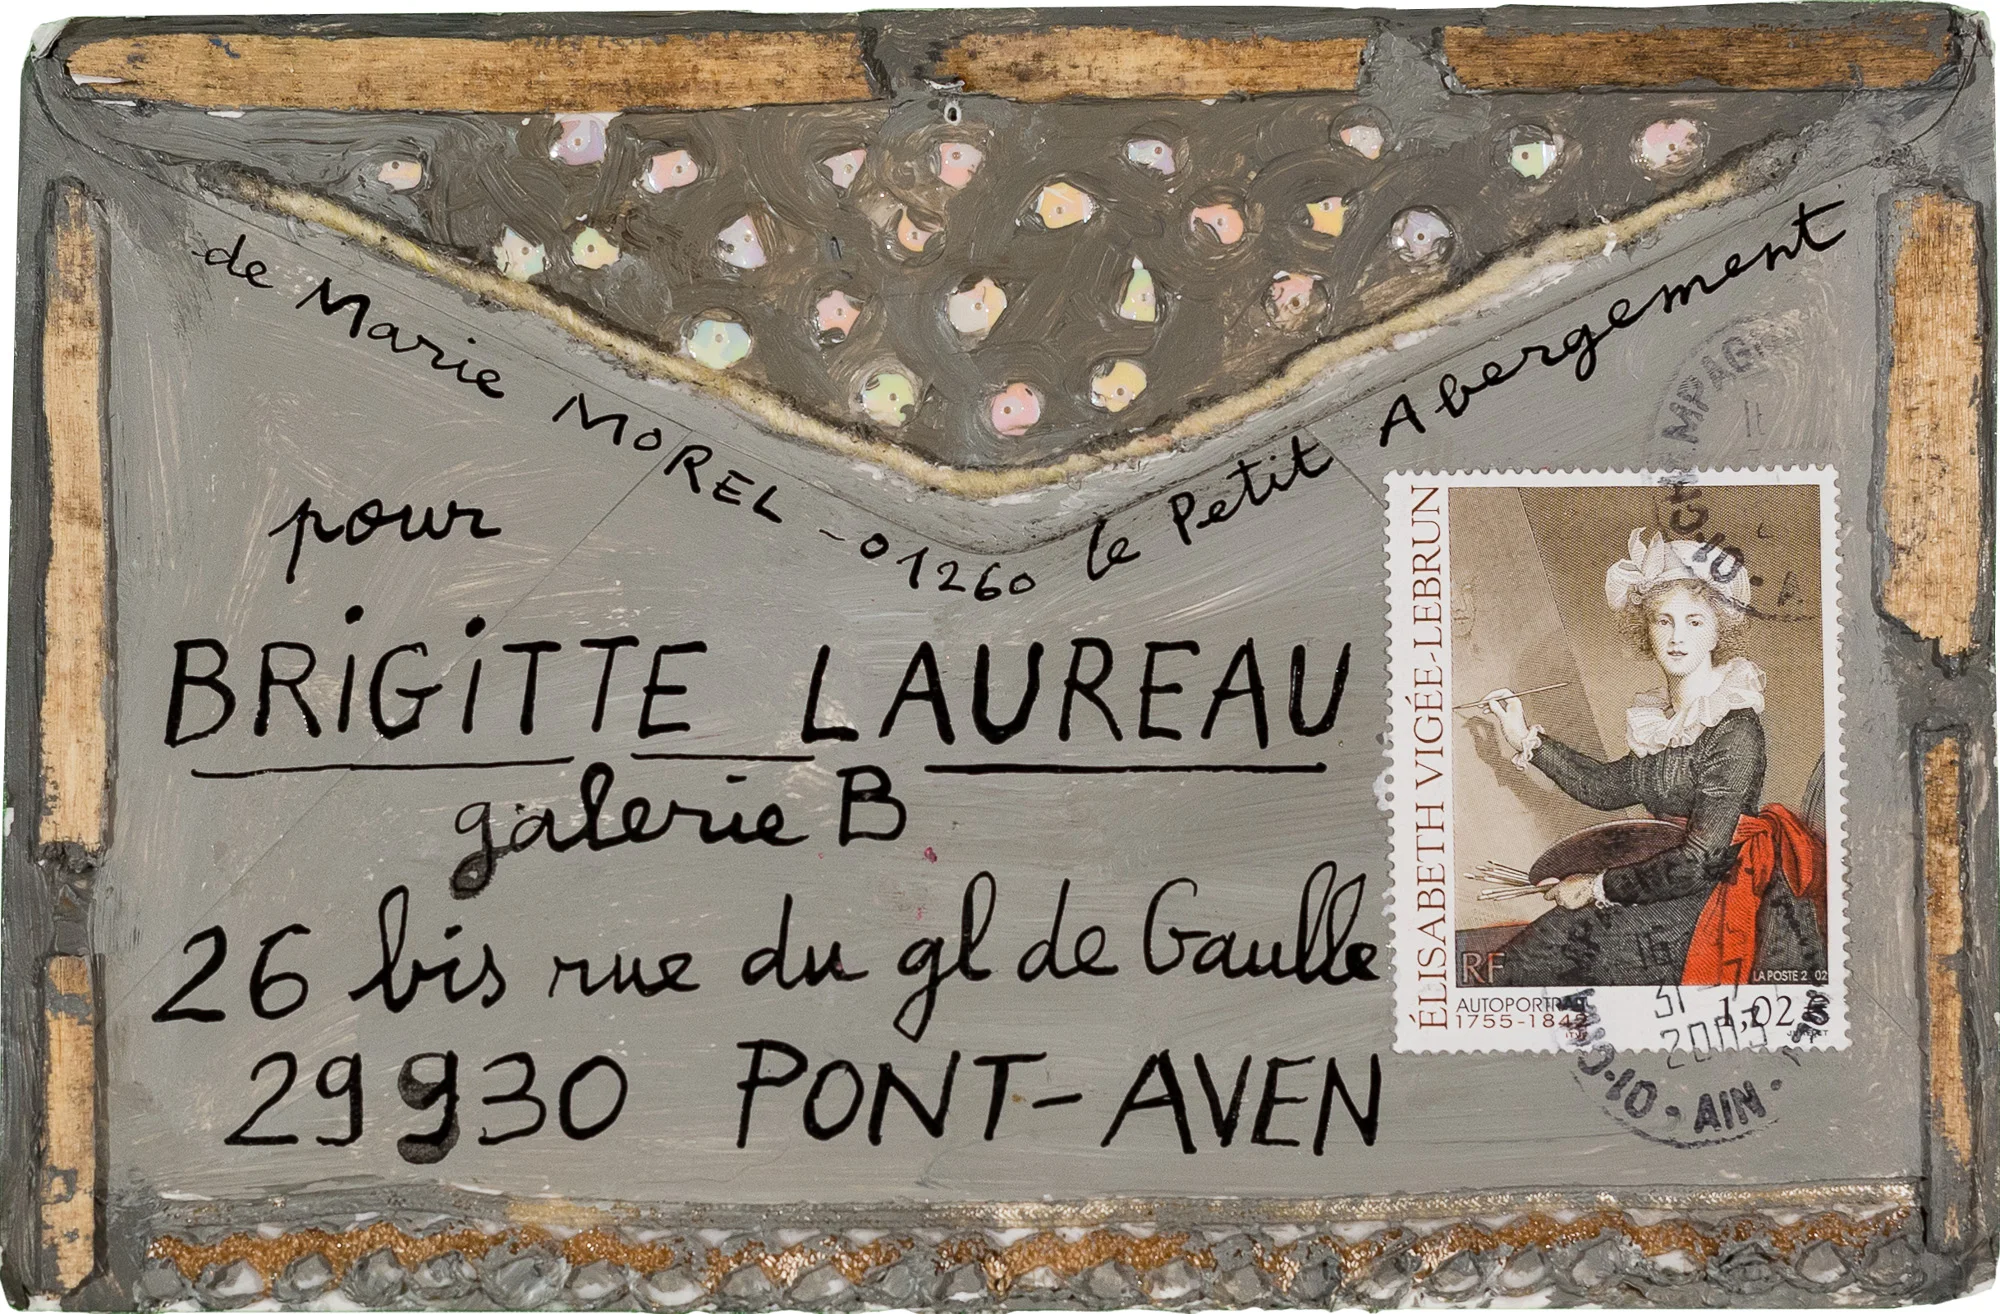 de Marie MOREL - 01260 le Petit Abergement
pour
BRiGiTTE LAUREAU
galerie B
26 bis rue du gl de Gaulle
29930 PONT-AVEN
ÉLISABETH VIGÉE-LEBRUN
RF
LA POSTE 2002
AUTOPORTRAIT
1755-1842
1,02
31-7
2003
01 • AIN •